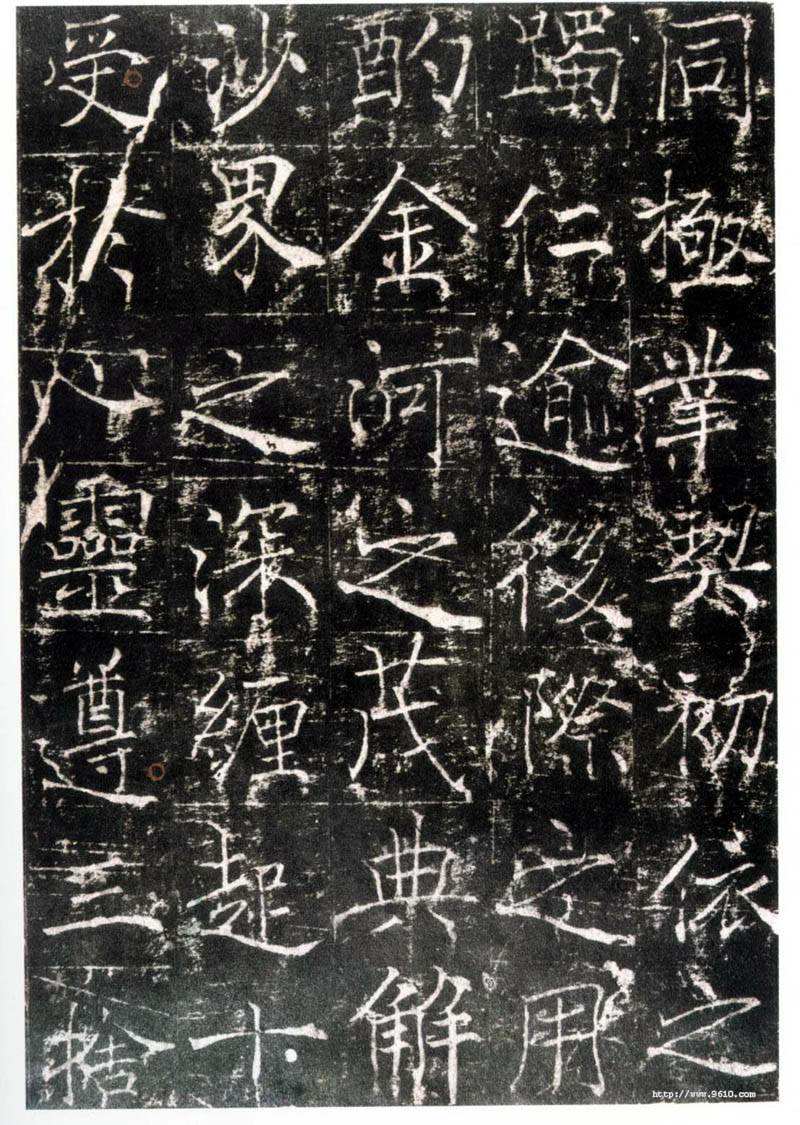 同極業契初依之
躅仁逾後際之用
酌金河之茂典解
沙界之深纏起十
受於靈遵三捨
http://www.9610.com